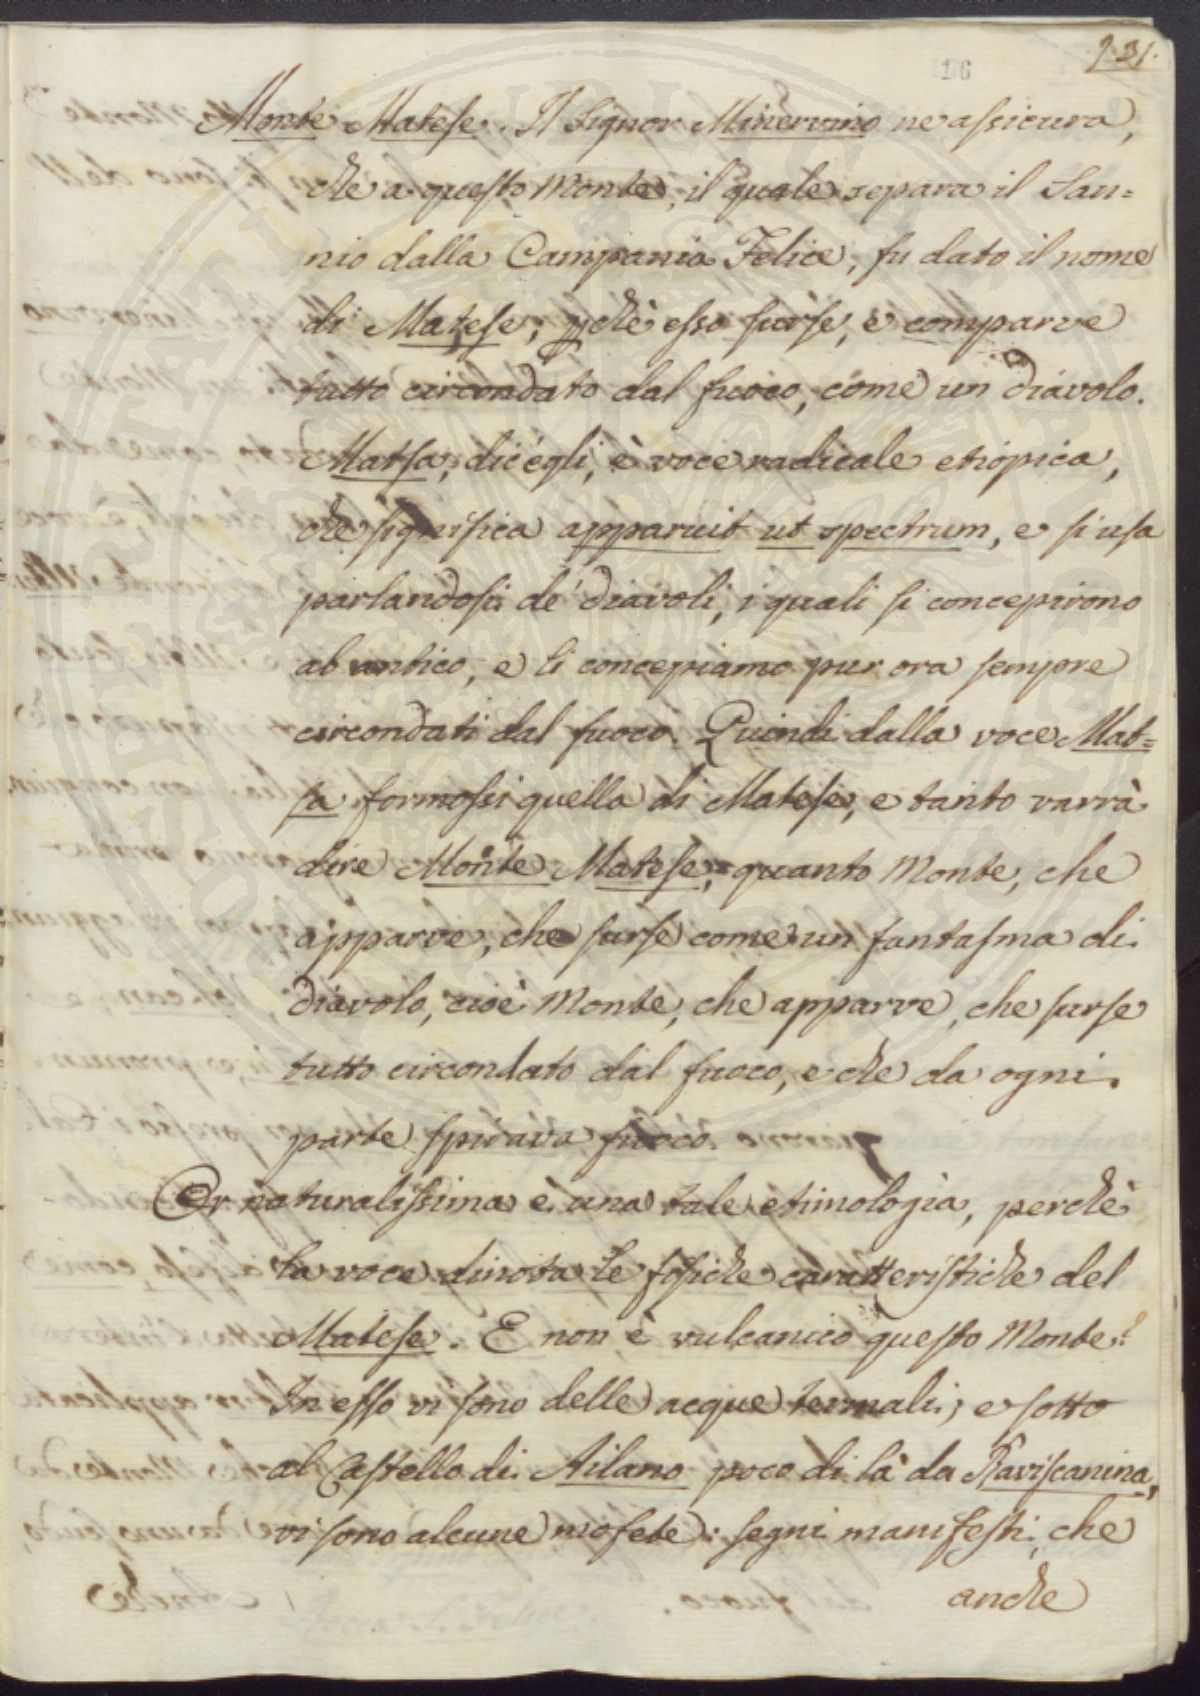 16
931.
Monte Matese. Il Signor Minervino ne assicura,
che a questo Monte, il quale separa il San=
nio dalla Campania Felice, fu dato il nome
di Matese; pchè esso surse, e comparve
tutto circondato dal fuoco, come un diavolo.
Matsa, dic'egli, è voce radicale etiopica,
che significa apparuit ut spectrum, e si usa
parlandosi de' diavoli, i quali si concepirono
ab antico, e li concepiamo pur ora sempre
circondati dal fuoco. Quindi dalla voce Mat=
sa formossi quella di Matese, e tanto varrà
dire Monte Matese, quanto Monte, che
apparve, che surse come un fantasma di
diavolo, cioè Monte, che apparve, che surse
tutto circondato dal fuoco, e che da ogni
parte spirava fuoco.
Or naturalissima è una tale etimologia, perchè
la voce dinota le fisiche caratteristiche del
Matese. E non è vulcanico questo Monte?
In esso vi sono delle acque termali; e sotto
al Castello di Ailano poco di là da Raviscanina,
vi sono alcune mofete: segni manifesti, che
anche